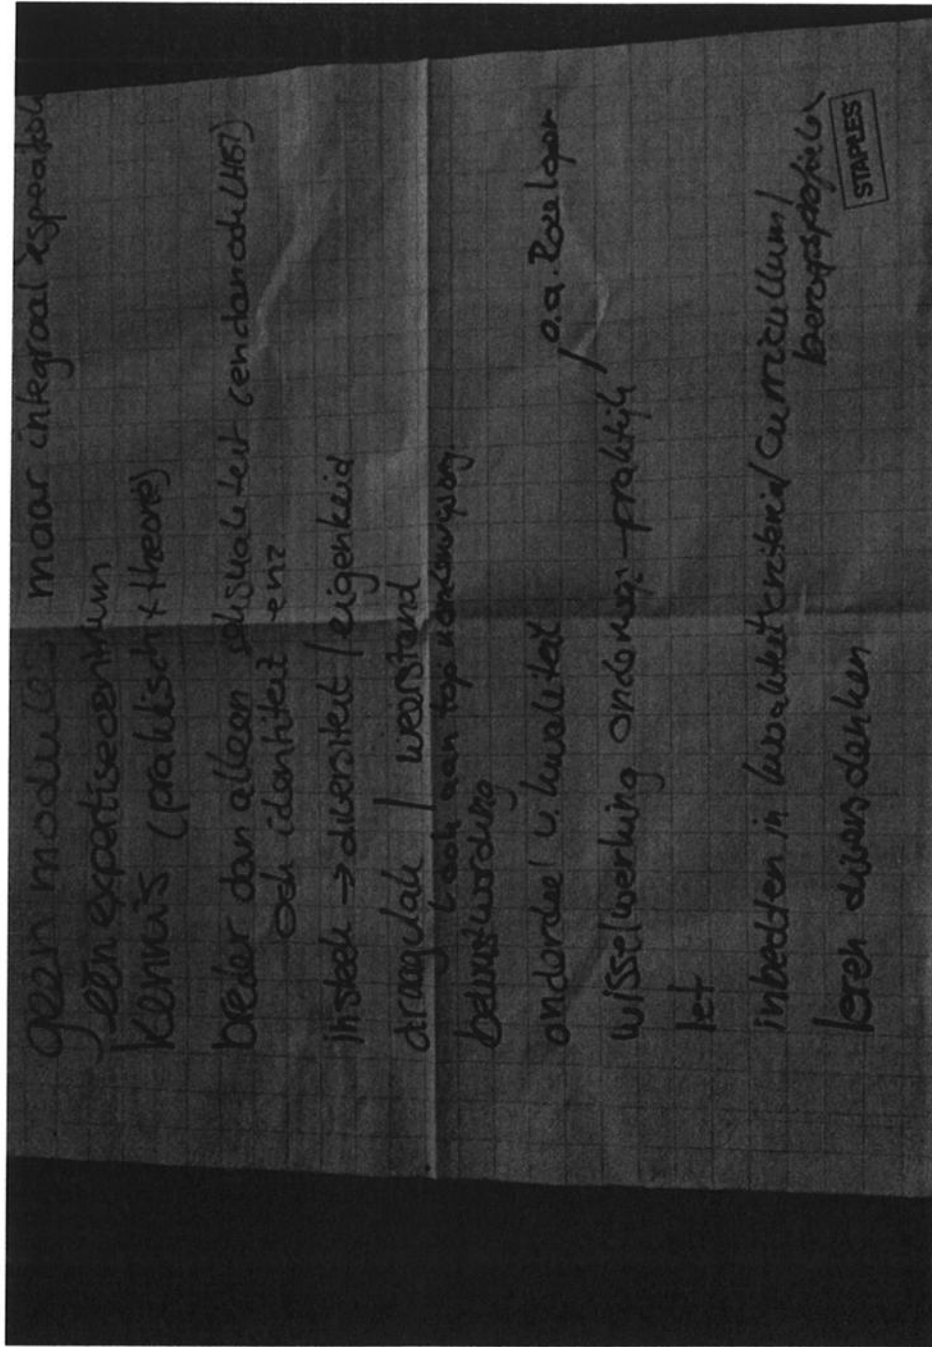 geen modules maar integraal
één expertisecentrum
kennis (praktisch + theorie)
breder dan alleen seksualiteit
ook identiteit enz
insteek → diversiteit / eigenheid
draagvlak / weerstand
ook aan top
bewustwording
onderdeel v. kwaliteit
o.a.
wisselwerking praktijk /
let
inbedden in kwaliteitcriteria/curriculum/
beroepsprofielen
leren divers denken
STAPLES